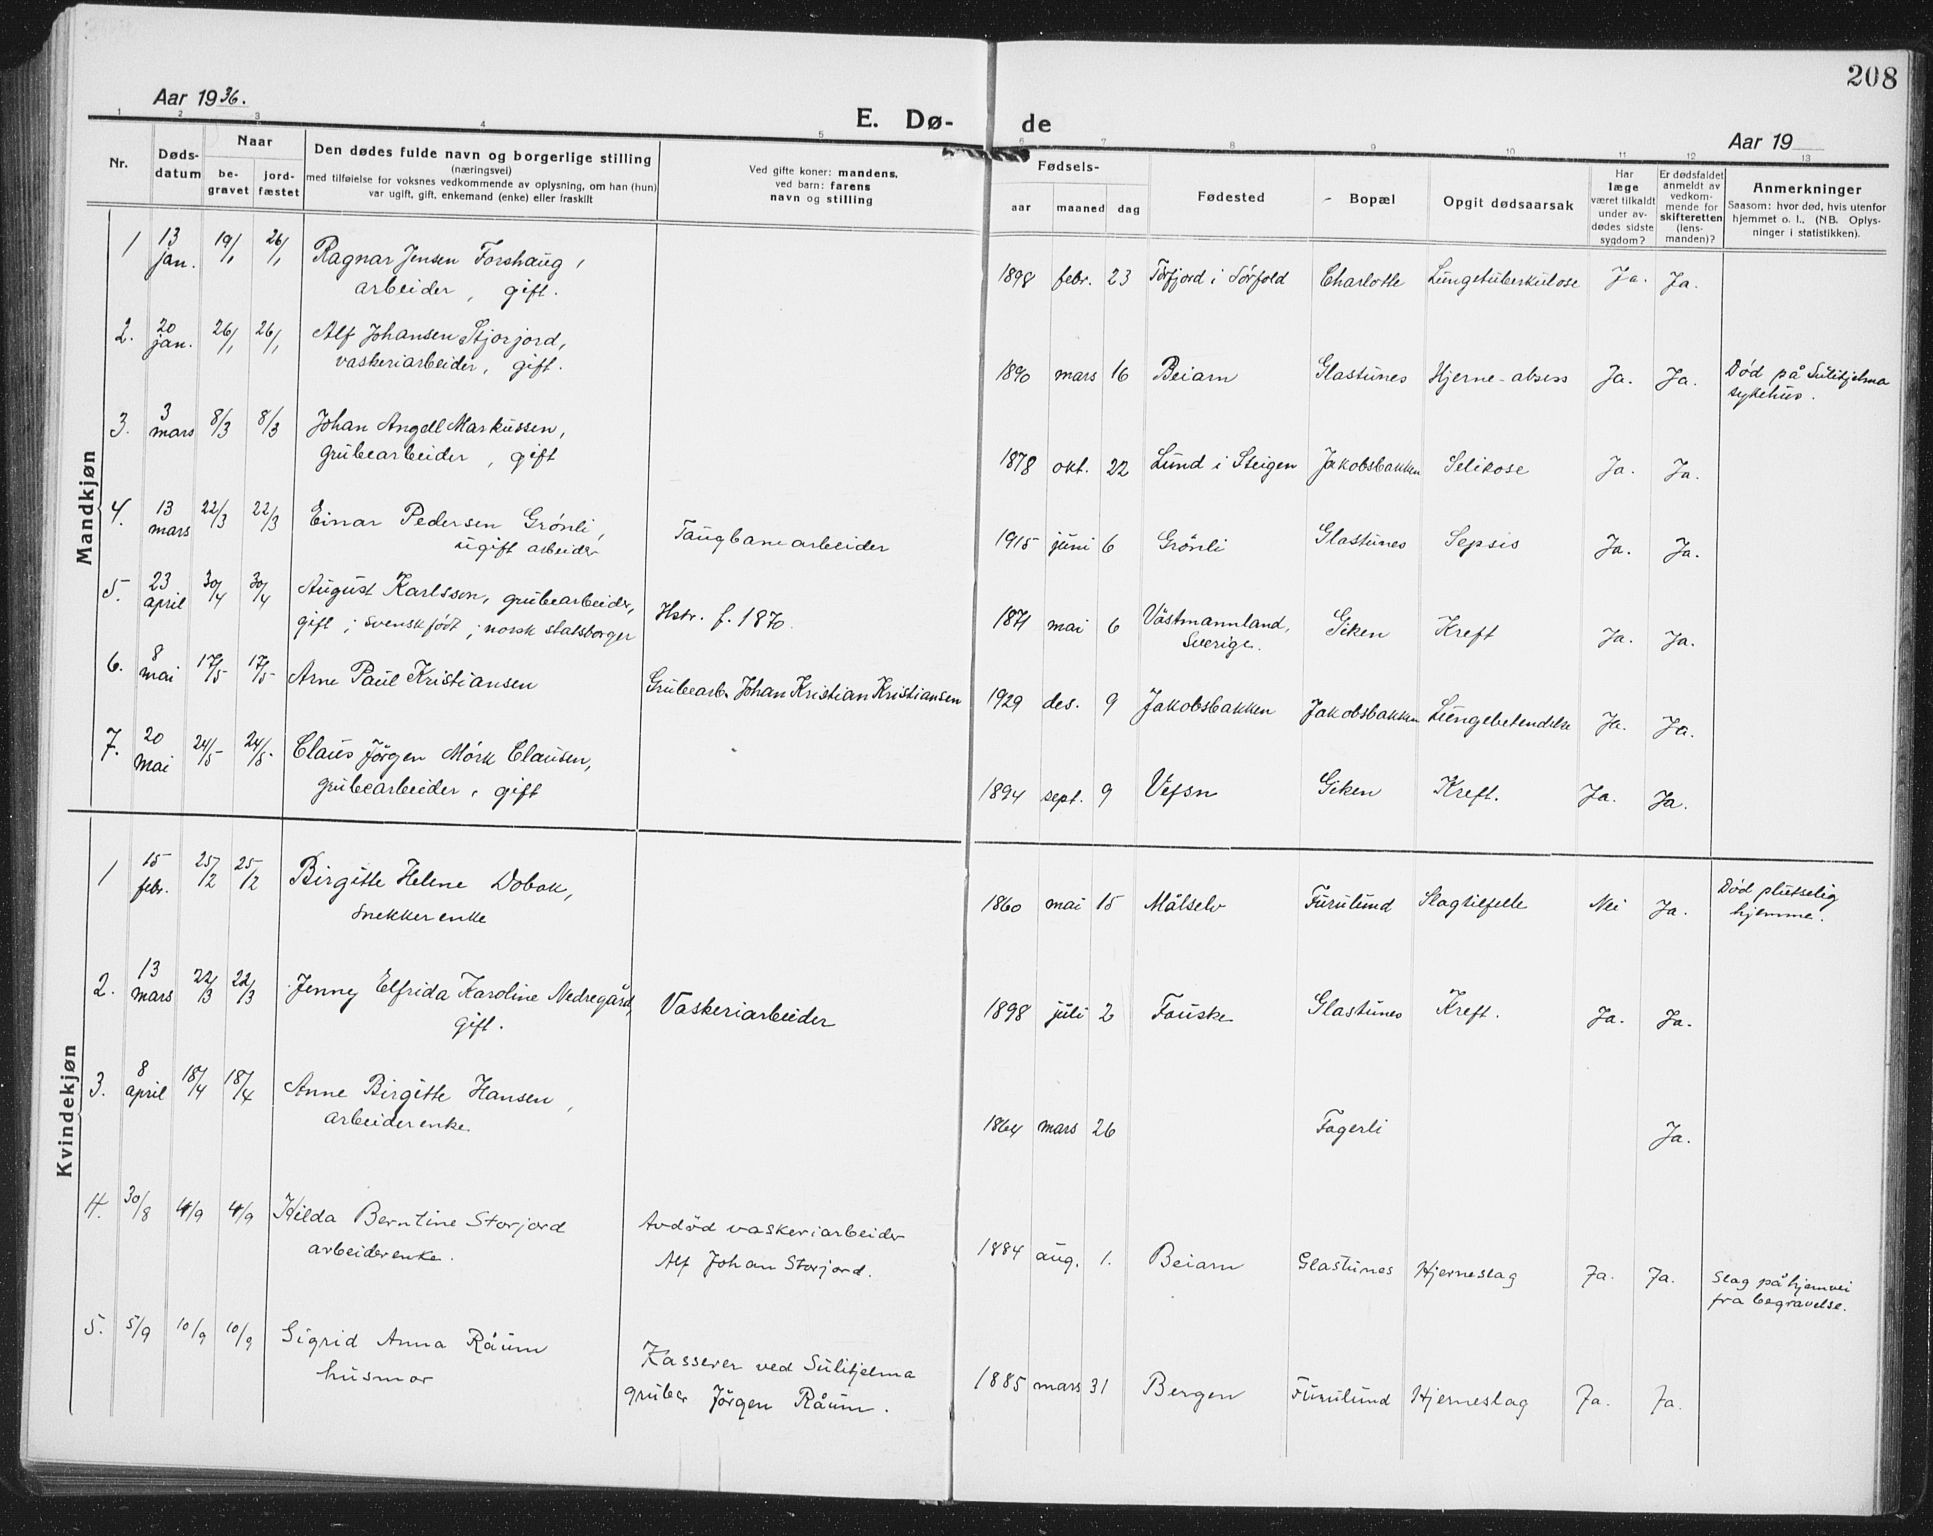 208
Aar 1936.
E. Dø-
de
Aar 19
1 2 3 4 5 6 7 8 9 10 11 12 13
Nr.
Døds-
datum
Naar
be-
gravet
jord-
fæstet
Den dødes fulde navn og borgerlige stilling
(næringsvei)
med tilføielse for voksnes vedkommende av oplysning, om han (hun)
var ugift, gift, enkemand (enke) eller fraskilt
Ved gifte koner: mandens,
ved barn: farens
navn og stilling
Fødsels-
aar maaned dag
Fødested
Bopæl
Opgit dødsaarsak
Har
læge
været tilkaldt
under av-
dødes sidste
sygdom?
Er dødsfaldet
anmeldt av
vedkom-
mende for
skifteretten
(lens-
manden)?
Anmerkninger
Saasom: hvor død, hvis utenfor
hjemmet o. l.. (NB. Oplys-
ninger i statistikken).
Mandkjøn
1 13 jan. 19/1 26/1 Ragnar Jensen Forshaug,
arbeider, gift.
1898 febr. 23 Tørfjord i Sørfold Charlotte Lungetuberkulose Ja. Ja.
2. 20 jan. 26/1 26/1 Alf Johansen Stjorjord,
vaskeriarbeider, gift.
1890 mars 16 Beiarn Glastunes Hjerne-absess Ja. Ja. Død på Sulitjelma
sykehus.
3. 3 mars 8/3 8/3 Johan Angell Markussen,
grubearbeider, gift
1878 okt. 22 Lund i Steigen Jakobsbakken Selikose Ja. Ja.
4. 13 mars 22/3 22/3 Einar Pedersen Grönli,
ugift arbeider
Taugbanearbeider
1915 juni 6 Grönli Glastunes Sepsis Ja. Ja.
5. 23 april 30/4 30/4 August Karlsson, grubearbeider,
gift; svenskfödt; norsk statsborger
Hstr. f. 1870.
1871 mai 6 Västmannland,
Sverige.
Giken Kreft Ja. Ja.
6. 8 mai 17/5 17/5 Arne Paul Kristiansen
Grubearb. Johan Kristian Kristiansen
1929 des. 9 Jakobsbakken Jakobsbakken Lungebetendelse Ja. Ja.
7. 20 mai 24/5 24/5 Claus Jörgen Mörk Clausen,
grubearbeider, gift
1894 sept. 9 Vefsn Giken Kreft. Ja. Ja.
Kvindekjøn
1 15 febr. 25/2 25/2 Birgitte Helene Dobak,
snekkerenke
1860 mai 15 Målselv Furulund Slagtilfelle Nei Ja. Død plutselig
hjemme.
2. 13 mars 22/3 22/3 Jenny Elfrida Karoline Nedregård,
gift.
Vaskeriarbeider
1898 juli 2 Fauske Glastunes Kreft. Ja. Ja.
3. 8 april 18/4 18/4 Anne Birgitte Hansen,
arbeiderenke.
1864 mars 26 Fagerli Ja.
4. 30/8 4/9 4/9 Hilda Berntine Storjord
arbeiderenke.
Avdöd vaskeriarbeider
Alf Johan Storjord.
1884 aug. 1. Beiarn Glastunes Hjerneslag Ja. Ja. Slag på hjemvei
fra begravelse.
5. 5/9 10/9 10/9 Sigrid Anna Råum
husmor
Kasserer ved Sulitjelma
gruber Jörgen Råum.
1885 mars 31 Bergen Furulund Hjerneslag Ja. Ja.